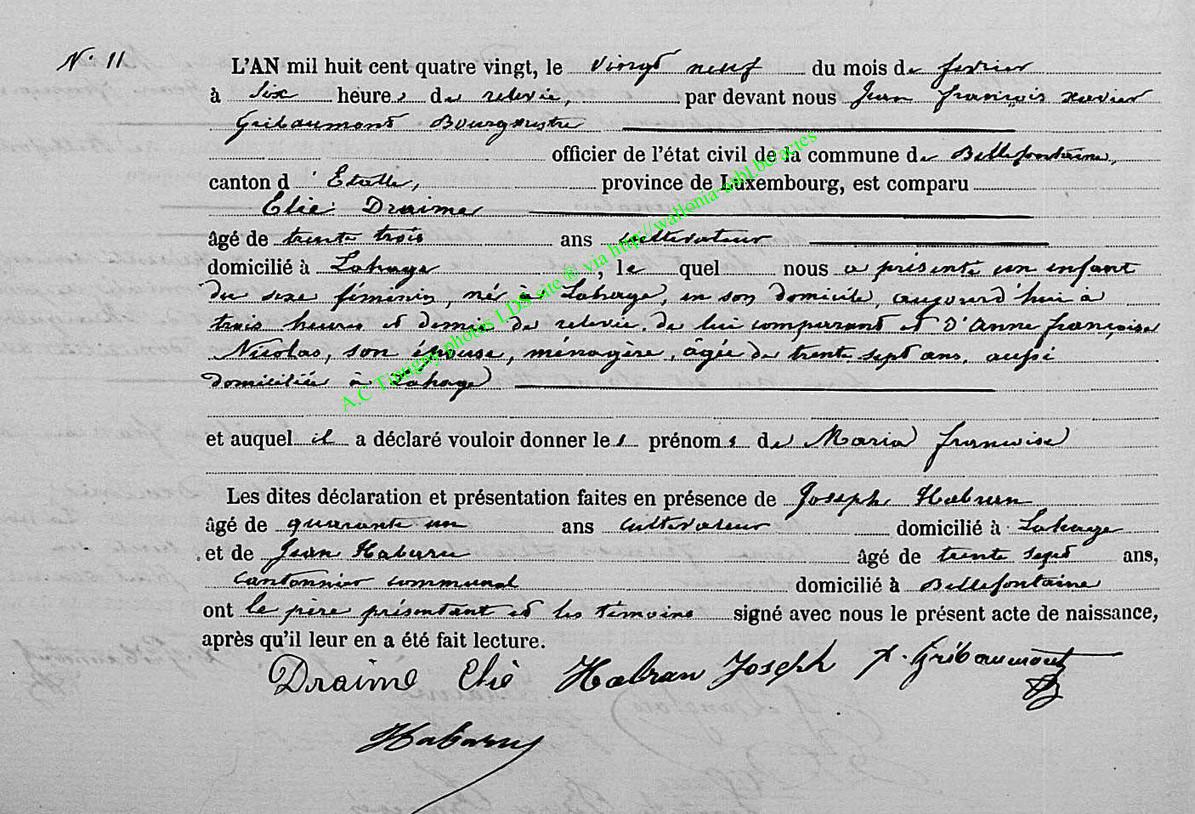 N° 11
L'AN mil huit cent quatre vingt, le vingt neuf du mois de fevrier
à six heures de relevée, par devant nous Jean françois xavier
Gribaumont Bourgmestre
officier de l'état civil de la commune de Bellefontaine,
canton d'Etalle, province de Luxembourg, est comparu
Elie Draime
âgé de trente trois ans cultivateur
domicilié à Lahage, le quel nous a présenté un enfant
du sexe féminin, né à Lahage, en son domicile, aujourd'hui à
trois heures et demie de relevée, de lui comparant et d'Anne françoise
Nicolas, son épouse, ménagère, âgée de trente sept ans, aussi
domiciliée à Lahage
et auquel il a déclaré vouloir donner les prénoms de Maria françoise
Les dites déclaration et présentation faites en présence de Joseph Habran
âgé de quarante un ans cultivateur domicilié à Lahage
et de Jean Habaru âgé de trente sept ans,
cantonnier communal domicilié à Bellefontaine
ont le père présentant et les témoins signé avec nous le présent acte de naissance,
après qu'il leur en a été fait lecture.
Draime Elie Habran Joseph x. Gribaumont
Habaru
A.C Tintigny photos LDS site ® via http://wallonia-asbl.be/actes